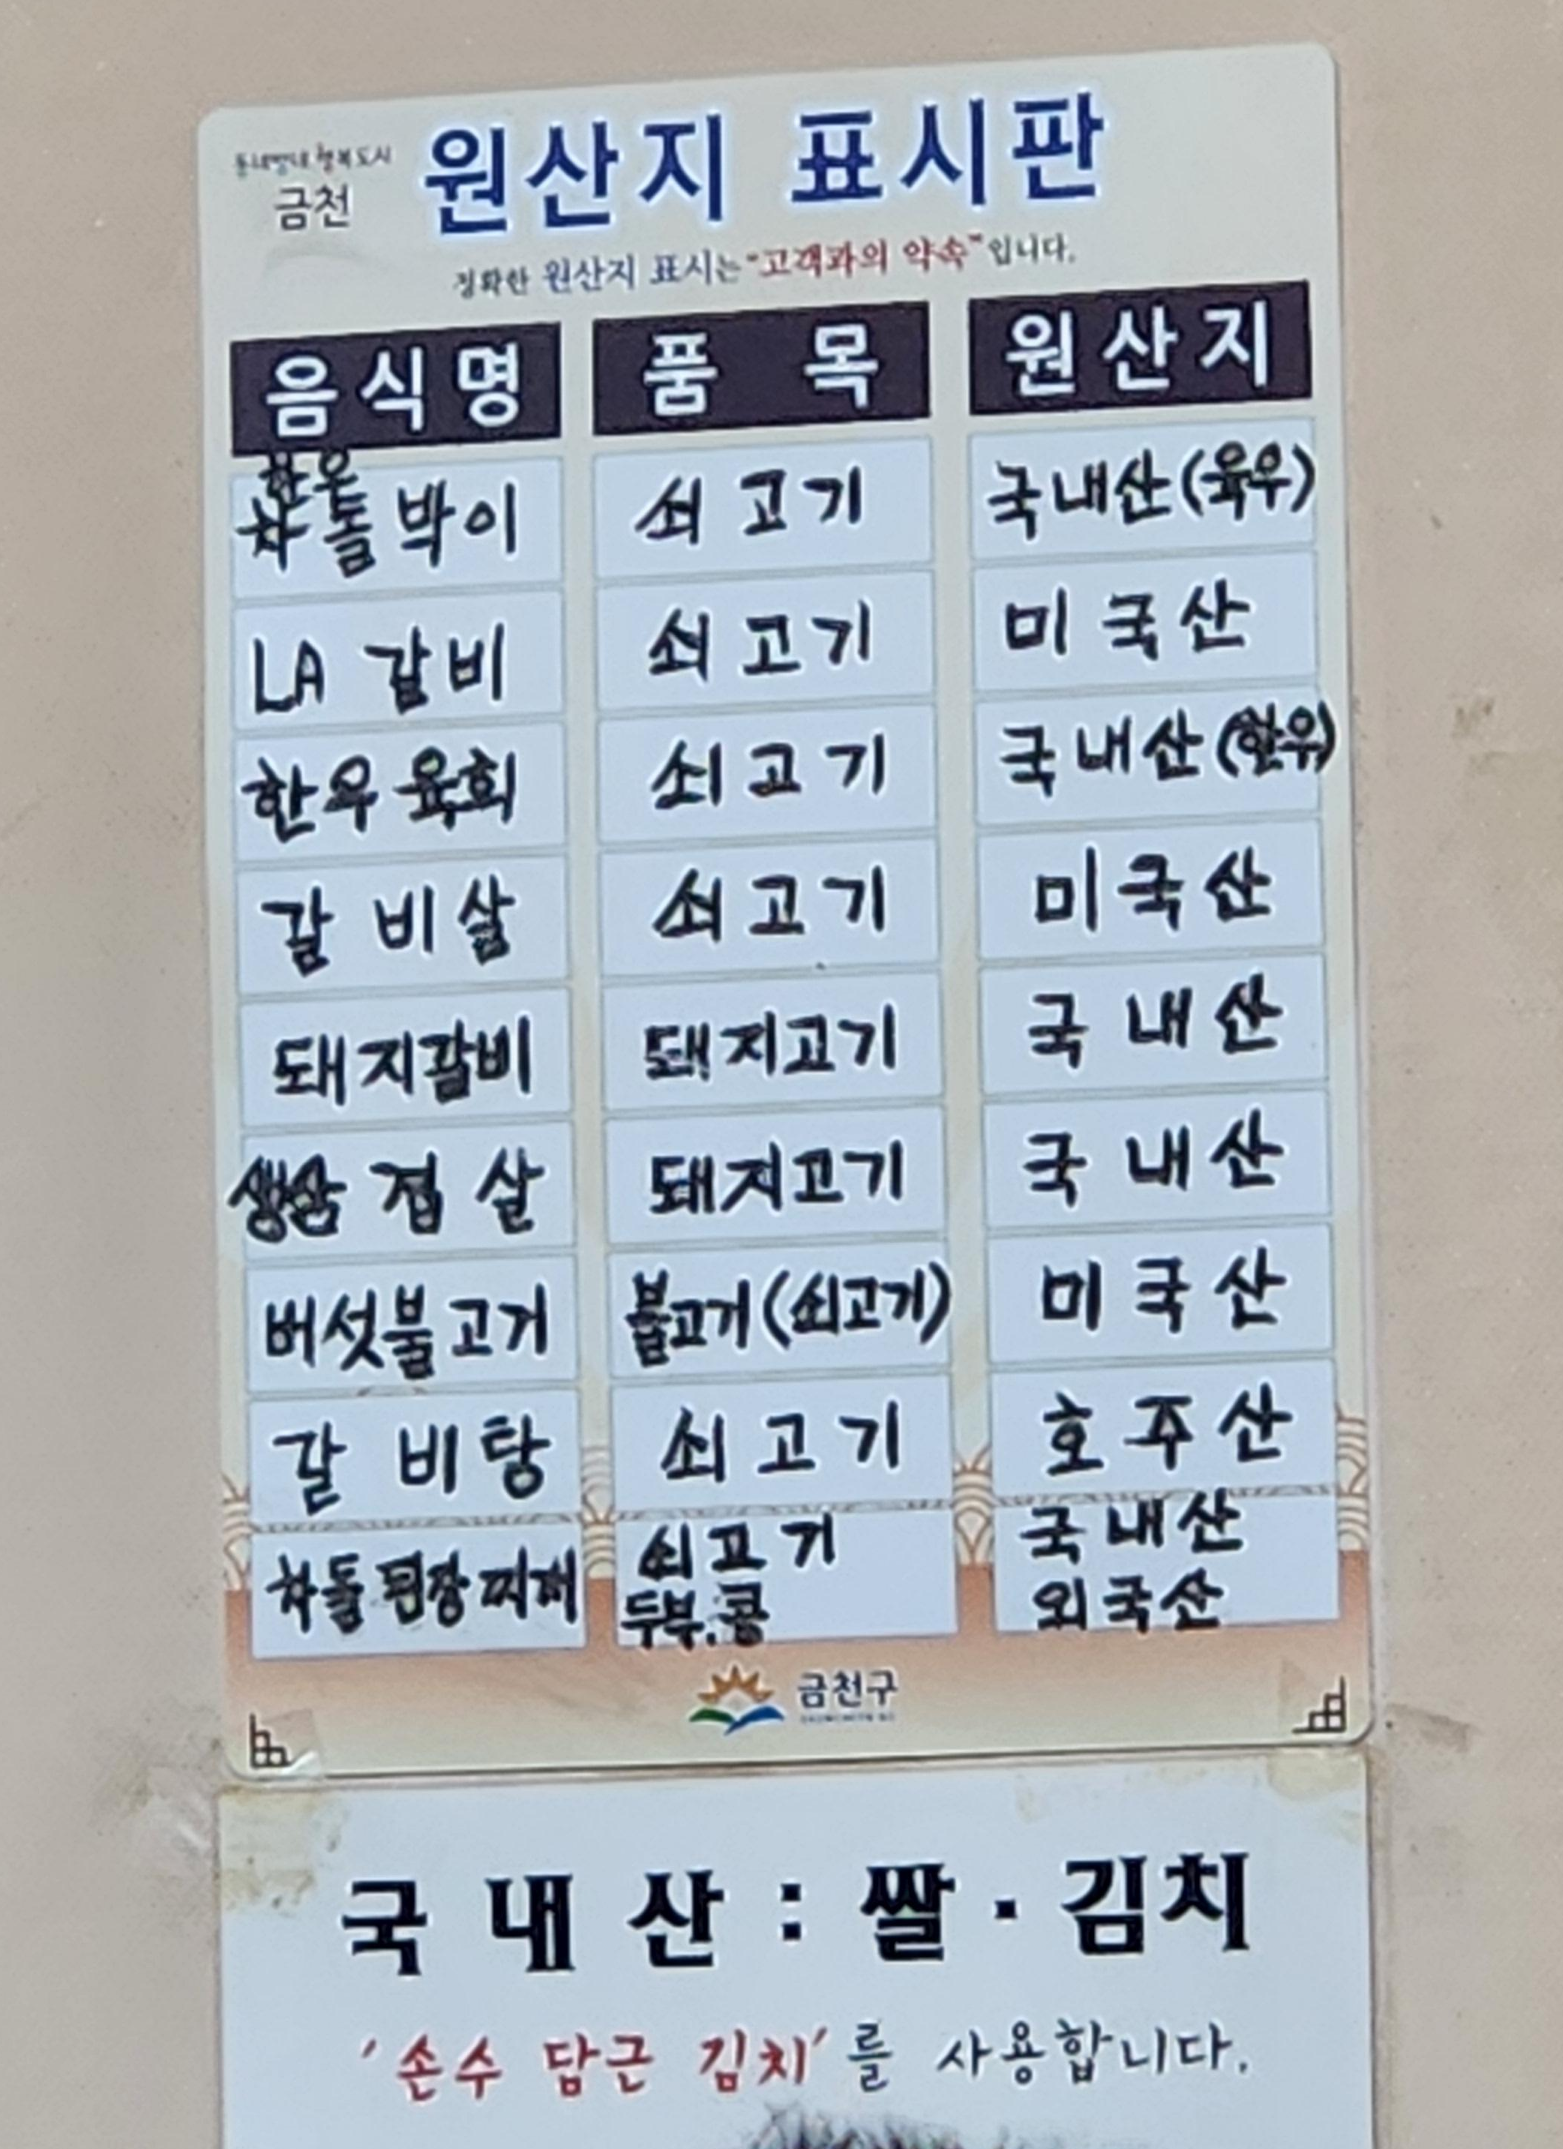 동네방네 행복도시
금천
원산지 표시판
정확한 원산지 표시는 "고객과의 약속" 입니다.
음식명 품 목 원산지
한우
차돌박이 쇠고기 국내산(육우)
LA 갈비 쇠고기 미국산
한우육회 쇠고기 국내산(한우)
갈비살 쇠고기 미국산
돼지갈비 돼지고기 국내산
생삼겹살 돼지고기 국내산
버섯불고기 불고기(쇠고기) 미국산
갈비탕 쇠고기 호주산
차돌된장찌개 쇠고기 국내산
두부.콩 외국산
금천구
국내산 : 쌀·김치
'손수 담근 김치'를 사용합니다.